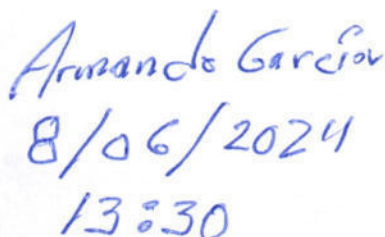 Armando García
8/06/2024
13:30